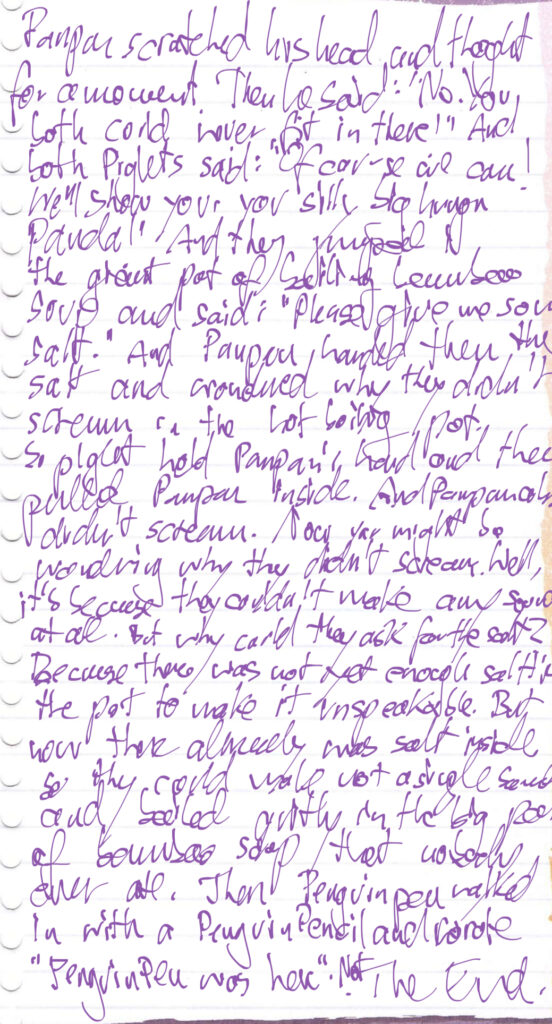 Panpan scratched his head and thought
for a moment. Then he said: "No. You
both could never fit in there!" And
both Piglets said: "Of cour-se we can!
We'll show you, you silly big hungry
Panda!" And they jumped in
the giant pot of boiling bamboo
soup and said: "Please give me some
salt." And Panpan handed them the
salt and wondered why they didn't
scream in the hot boiling pot.
So piglet held Panpan's hand and they
pulled Panpan inside. And Panpan also
didn't scream. Now you might be
wondering why they didn't scream. Well,
it's because they couldn't make any sound
at all. But why could they ask for the salt?
Because there was not yet enough salt in
the pot to make it unspeakable. But
now there already was salt inside
so they could make not a single sound
and boiled quietly in the big pot
of bamboo soup that nobody
ever ate. Then PenguinPen walked
in with a PenguinPencil and wrote
"PenguinPen was here". Not The End.